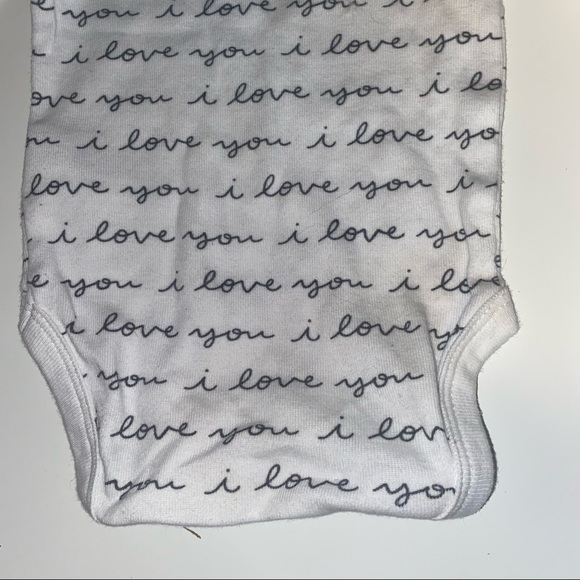 you i love you i
i love you i love you
ove you i love you i lo
i love you i love yo
love you i love you i
i love you i love you
e you i love you i love
i love you i love y
you i love you
love you i lov
you i love yo